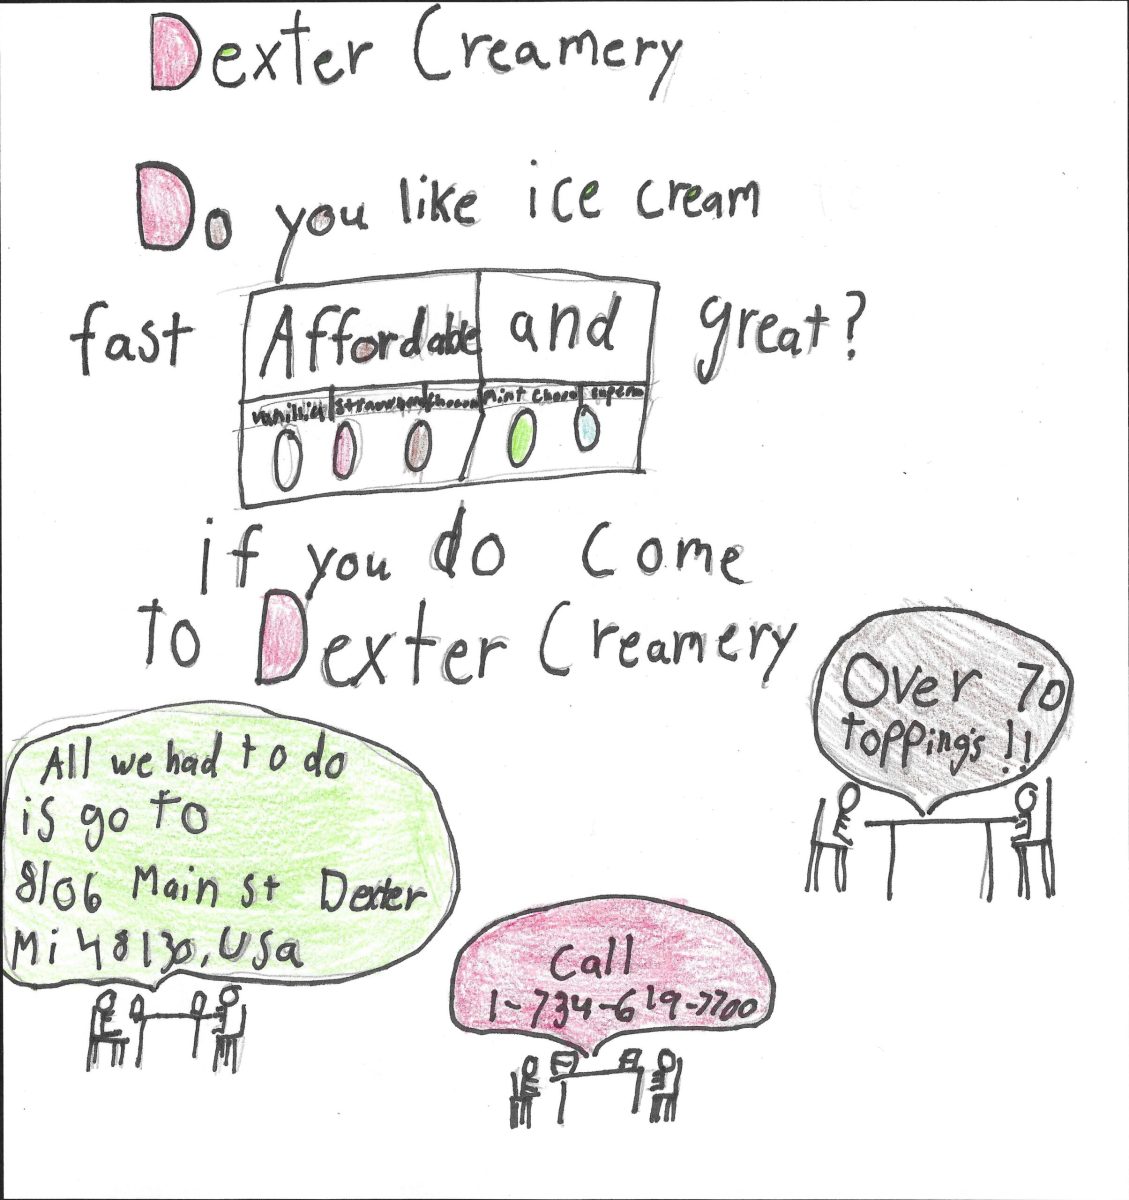 Dexter Creamery
Do you like ice cream
fast Affordable and great?
if you do come
To Dexter Creamery
Over 70
toppings!!
All we had to do
is go to
8106 Main St Dexter
Mi 48130, USa
Call
1-734-619-7700